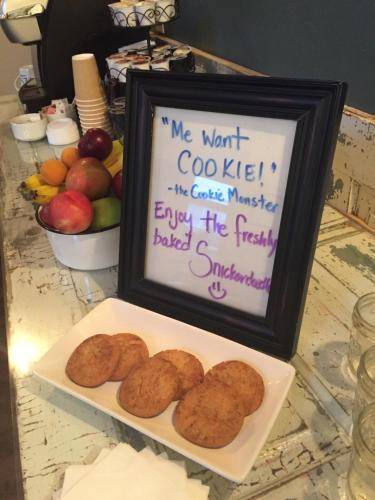 "Me want
COOKIE!"
- the Cookie Monster
Enjoy the freshly
baked Snickerdoodles